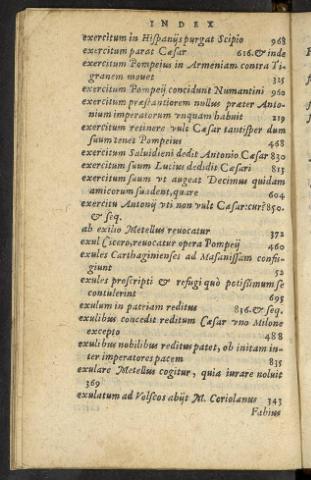 INDEX
exercitum in Hispanijs purgat Scipio 968
exercitum parat Cæsar 626.& inde
exercitum Pompeius in Armeniam contra Ti-
granem mouet 325
exercitum Pompeij concidunt Numantini 960
exercitum præstantiorem nullus præter Anto-
nium imperatorum vnquam habuit 219
exercitum retinere vult Cæsar tantisper dum
suum tenet Pompeius 468
exercitum Saluidieni dedit Antonio Cæsar 830
exercitum suum Lucius dedidit Cæsari 813
exercitum suum vt augeat Decimus quidam
amicorum suadent, quare 604
exercitu Antonij vti non vult Cæsar:cur? 850.
& seq.
ab exilio Metellus reuocatur 372
exul Cicero, reuocatur opera Pompeij 460
exules Carthaginienses ad Masanissam confu-
giunt 52
exules proscripti & refugi quò potissimum se
contulerint 695
exulum in patriam reditus 836.& seq.
exulibus concedit reditum Cæsar vno Milone
excepto 488
exulibus nobilibus reditus patet, ob initam in-
ter imperatores pacem 835
exulare Metellus cogitur, quia iurare noluit
369
exulatum ad Volscos abijt M. Coriolanus 343
Fabius